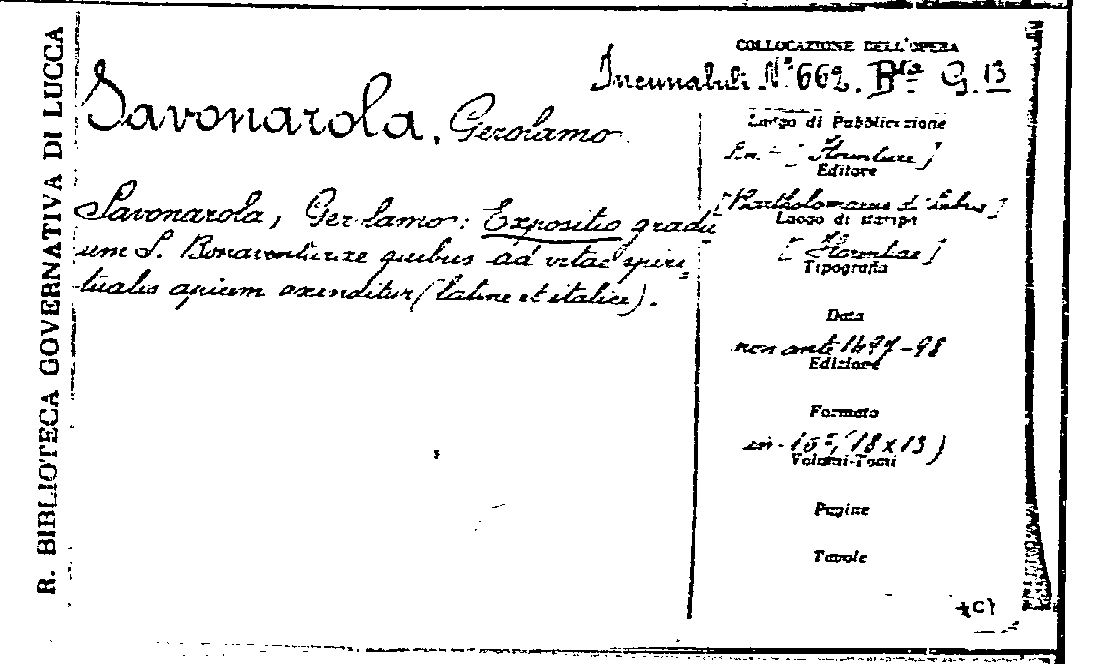 R. BIBLIOTECA GOVERNATIVA DI LUCCA
COLLOCAZIONE DELL'OPERA
Incunabuli N.° 662. B.ta G. 13
Savonarola, Gerolamo
Savonarola, Gerolamo: Expositio gradu
um S. Bonaventurae quibus ad vitae spiri=
tualis apicem ascenditur (latine et italice).
Luogo di Pubblicazione
[Florentiae]
Editore
[Bartholomaeus de Libris]
Luogo di stampa
[Florentiae]
Tipografia
Data
non ante 1497-98
Edizione
Formato
in-16°, (18x13)
Volumi-Tomi
Pagine
Tavole